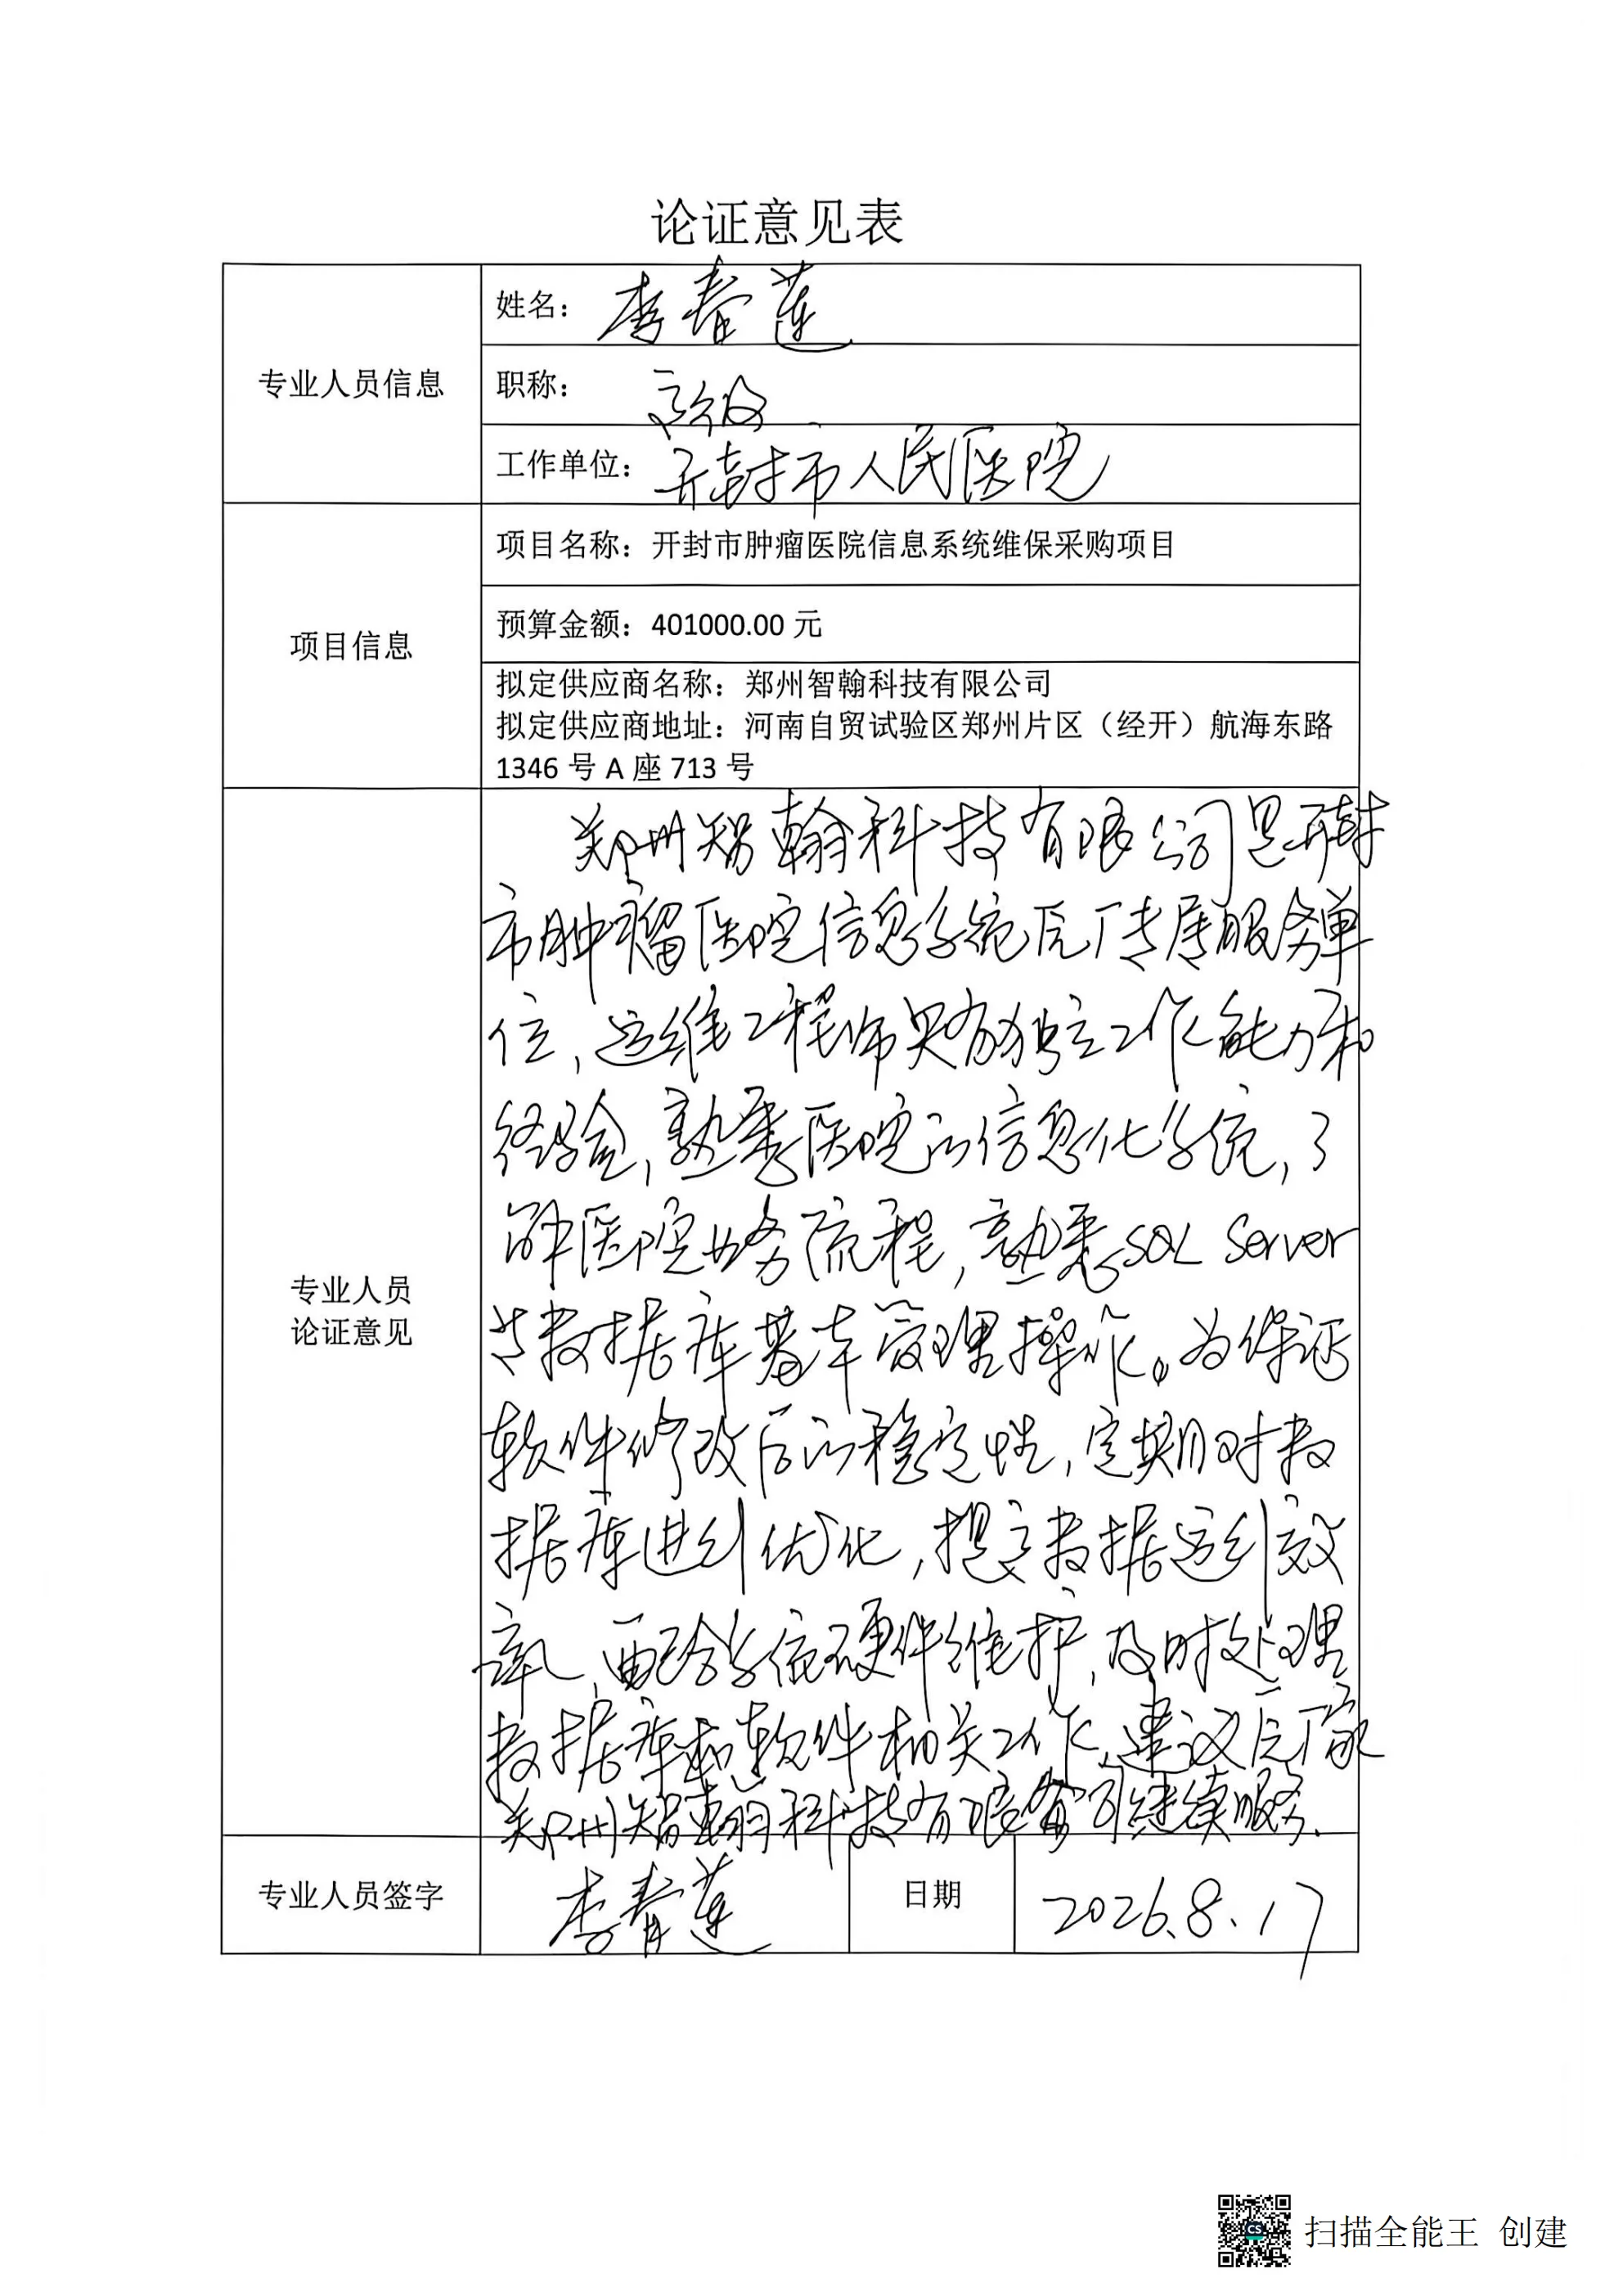 论证意见表
专业人员信息
姓名：李春莲
职称：高级
工作单位：开封市人民医院
项目信息
项目名称：开封市肿瘤医院信息系统维保采购项目
预算金额：401000.00 元
拟定供应商名称：郑州智翰科技有限公司
拟定供应商地址：河南自贸试验区郑州片区（经开）航海东路
1346 号 A 座 713 号
专业人员
论证意见
郑州智翰科技有限公司是开封
市肿瘤医院信息系统原厂专属服务单
位，运维工程师具有独立工作能力和
经验，熟悉医院的信息化系统，了
解医院业务流程，熟悉SQL Server
等数据库基本管理操作。为保证
软件修改后的稳定性，定期对数
据库进行优化，提高数据运行效
率，配合系统硬件维护，及时处理
数据库和软件相关工作，建议原厂家
郑州智翰科技有限公司继续服务．
专业人员签字
李春莲
日期
2026.8.17
扫描全能王 创建